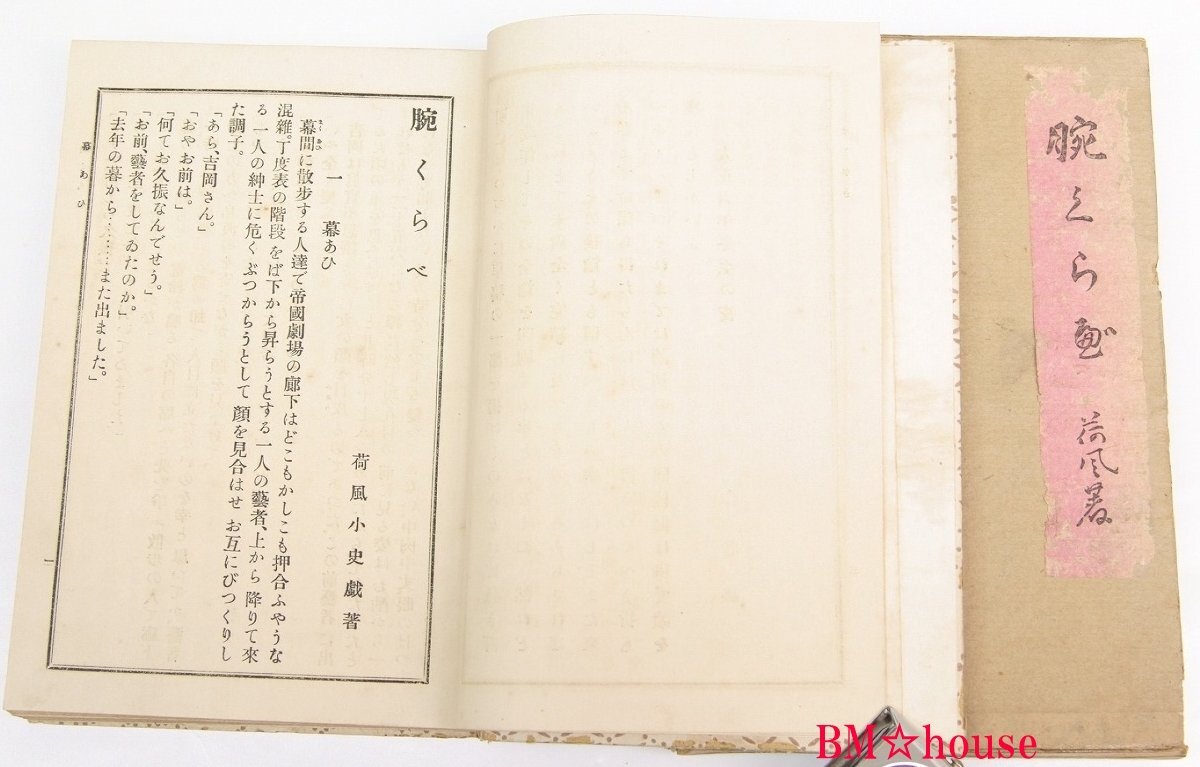 腕くらゞ
荷風著
腕くらべ
荷風小史戯著
一　幕あひ
幕間に散歩する人達で帝國劇場の廊下はどこもかしこも押合ふやうな
まくあひ
混雜。丁度表の階段をば下から昇らうとする一人の藝者、上から降りて來
る一人の紳士に危くぶつからうとして顏を見合はせお互にびつくりし
た調子。
「あら、吉岡さん。」
「おやお前は。」
「何てお久振なんでせう。」
「お前、藝者をしてゐたのか。」
「去年の暮から………また出ました。」
幕あひ
一
BM☆house